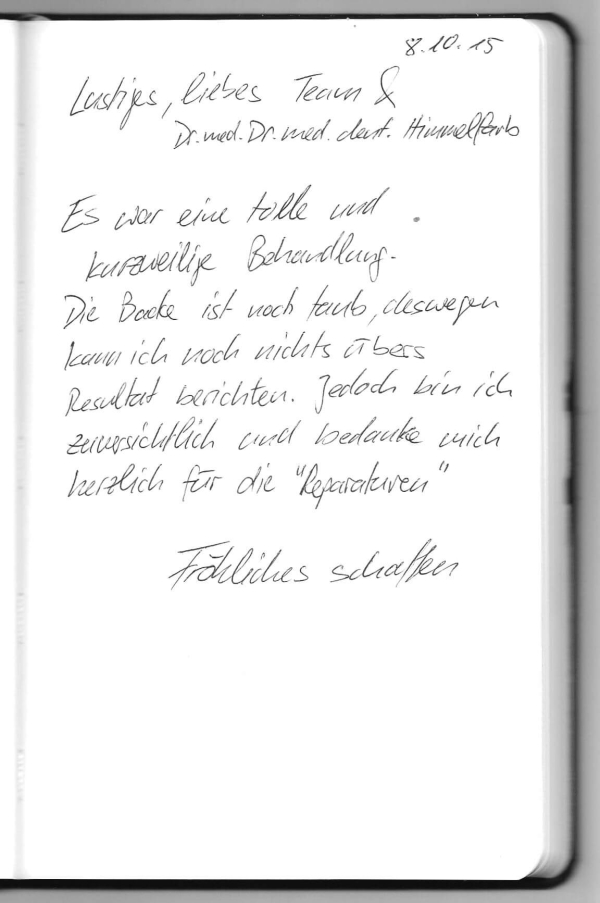 8.10.15
Lustiges, liebes Team &
Dr. med. Dr. med. dent. Himmelfarb
Es war eine tolle und
kurzweilige Behandlung.
Die Backe ist noch taub, deswegen
kann ich noch nichts übers
Resultat berichten. Jedoch bin ich
zuversichtlich und bedanke mich
herzlich für die "Reparaturen"
Fröhliches schaffen